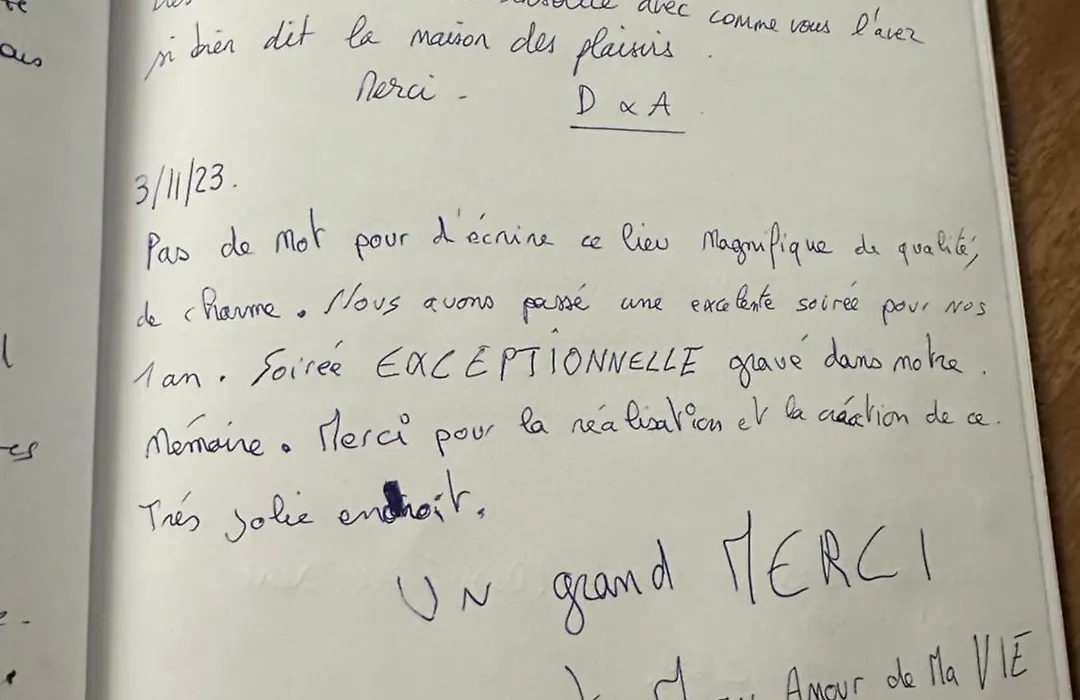 avec comme vous l'avez
si bien dit la maison des plaisirs.
Merci -
D & A
3/11/23.
Pas de Mot pour d'écrire ce lieu Magnifique de qualité,
de charme. Nous avons passé une excelente soirée pour Nos
1 an. Soirée EXCEPTIONNELLE gravé dans notre.
Mémoire. Merci pour la réalisation et la création de ce.
Trés jolie endroit.
UN grand MERCI
Amour de Ma VIE